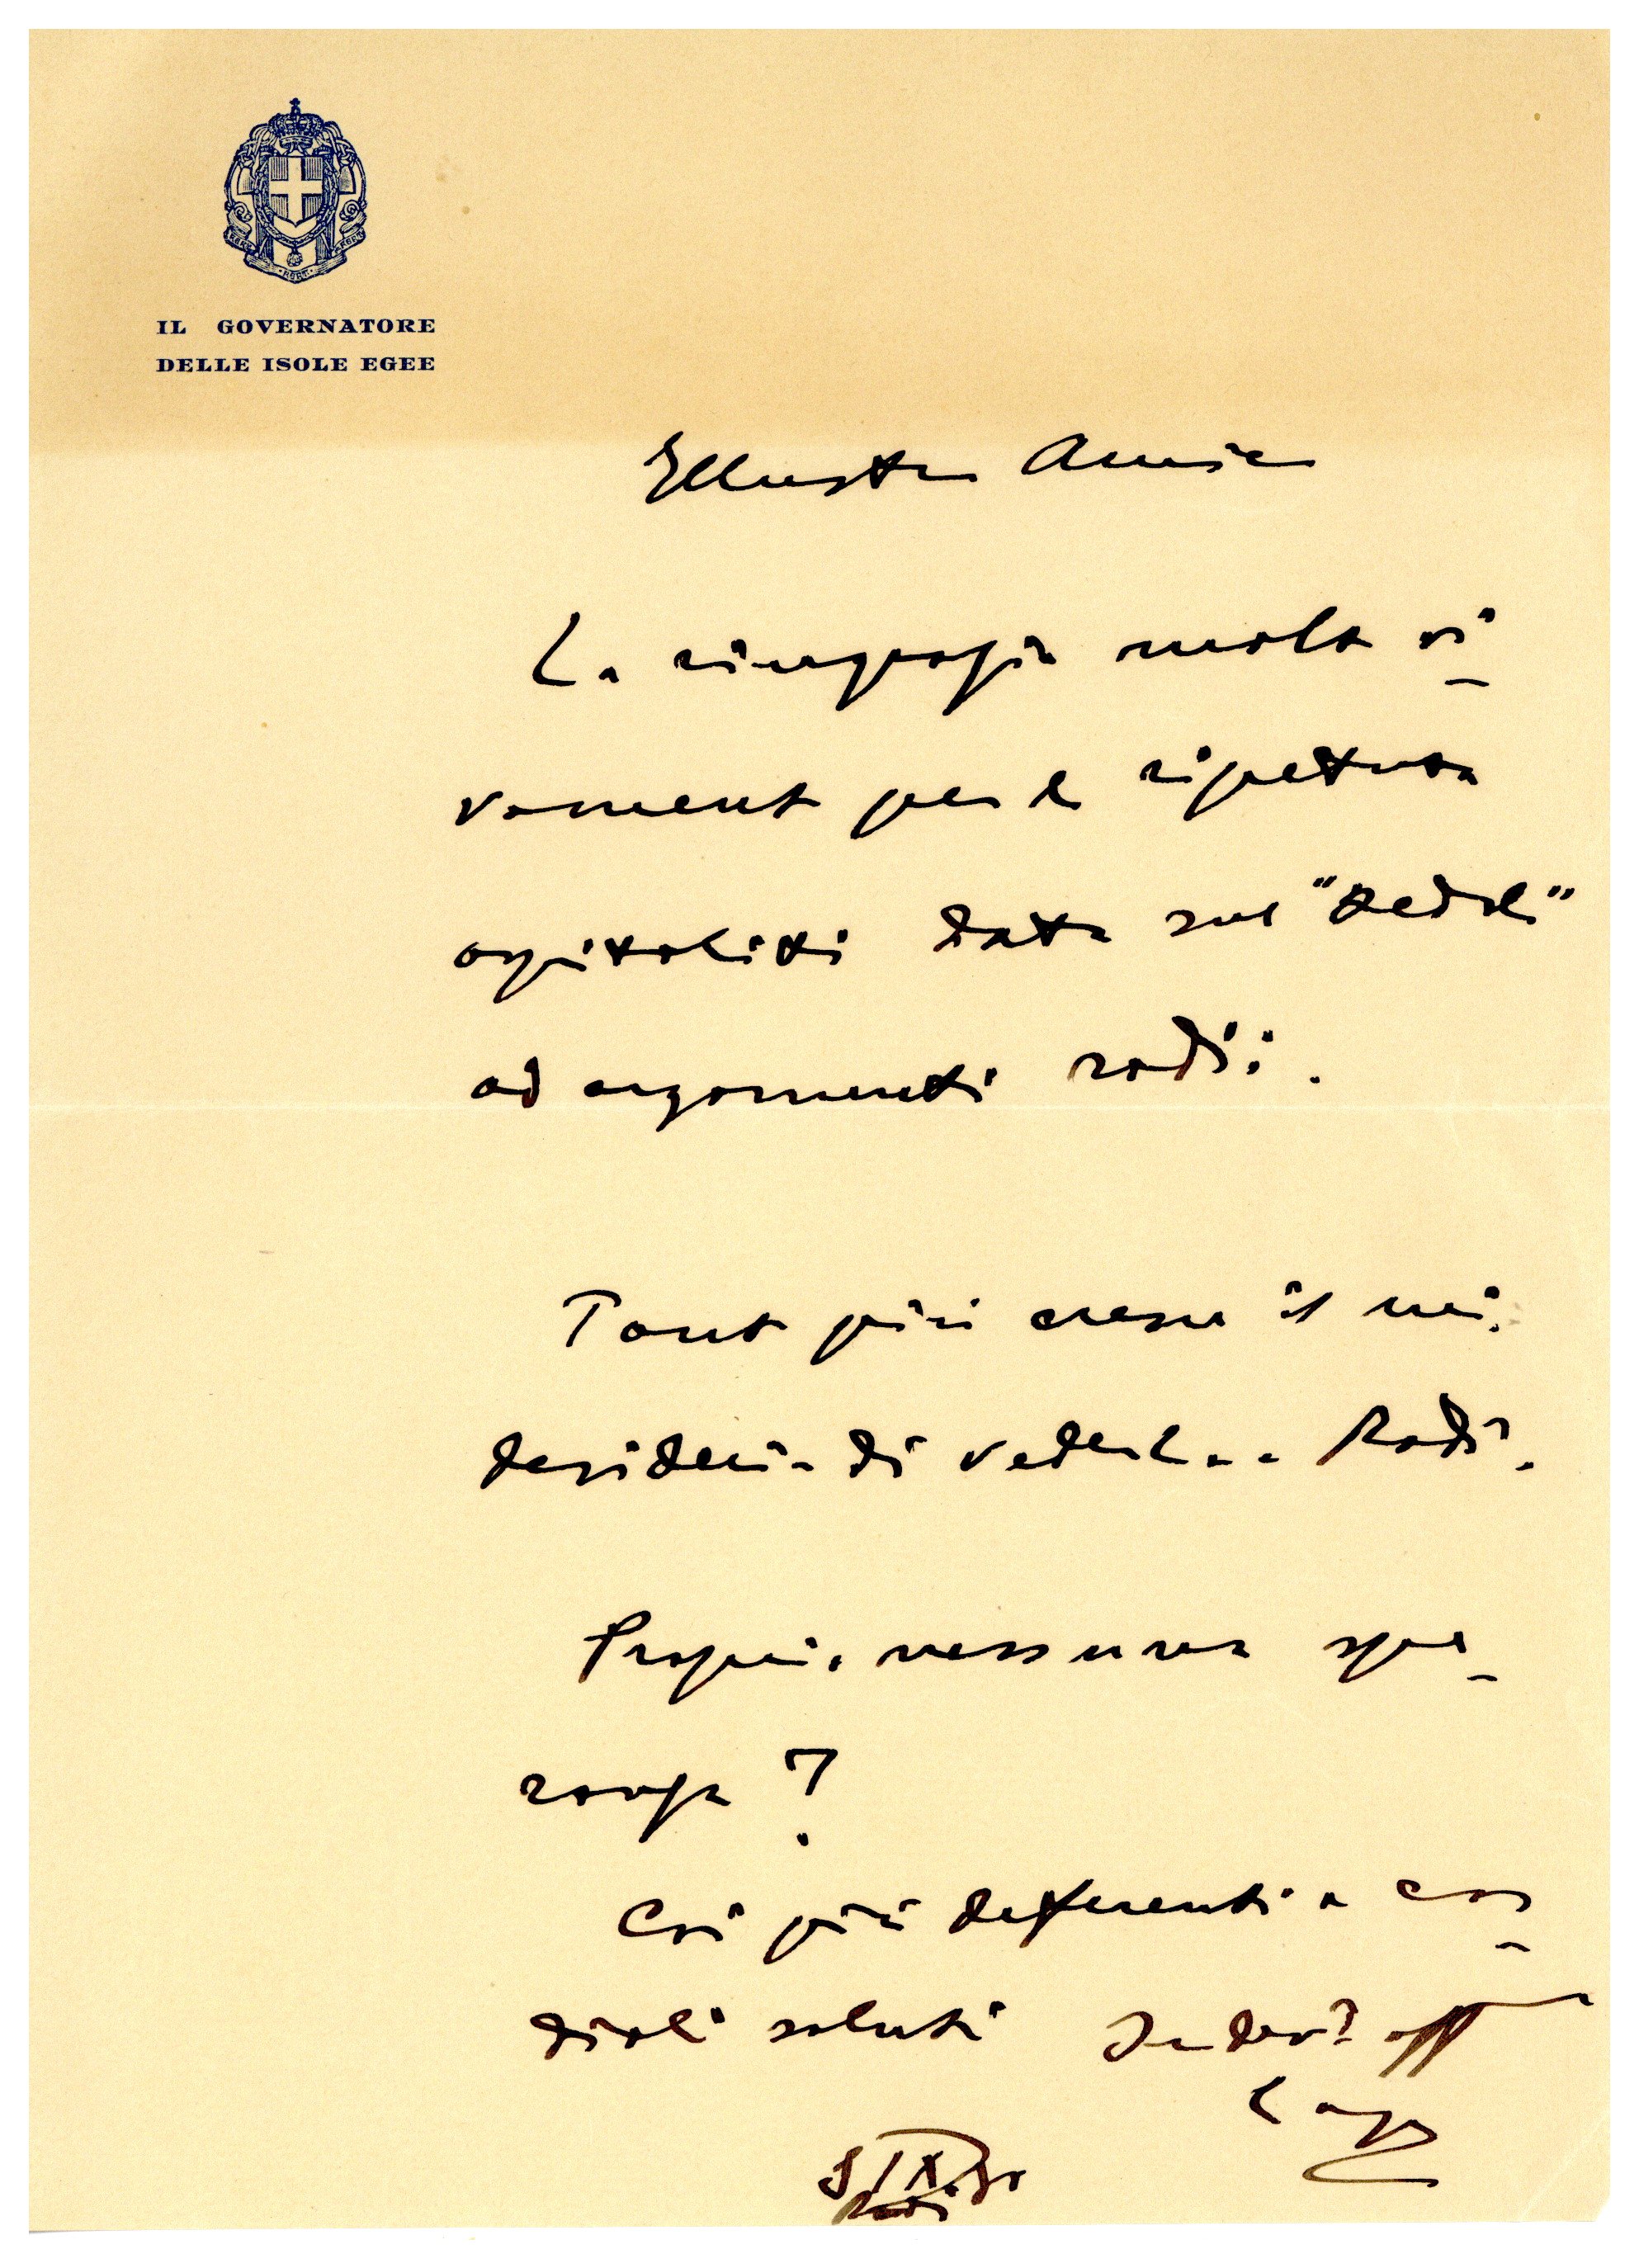 FERT FERT FERT
IL GOVERNATORE
DELLE ISOLE EGEE
Illustre Amico
La ringrazio molto vi-
vamente per la ripetuta
ospitalità data sul "Dedalo"
ad argomenti rodii.
Tanto più cresce il mio
desiderio di vederla a Rodi.
Proprio nessuna spe-
ranza?
Coi più deferenti e cor-
diali saluti Suo dev° aff
Lago
IX
Rodi